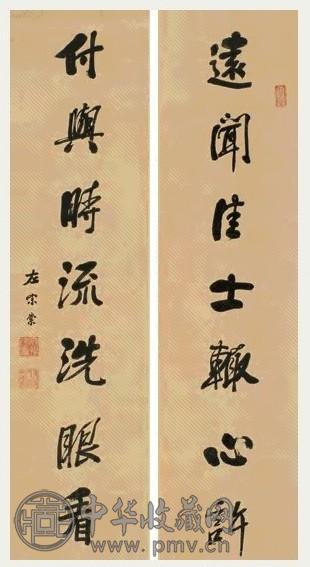 遠聞佳士輙心許
付與時流洗眼看
左宗棠
中华收藏网
www.pmv.cn